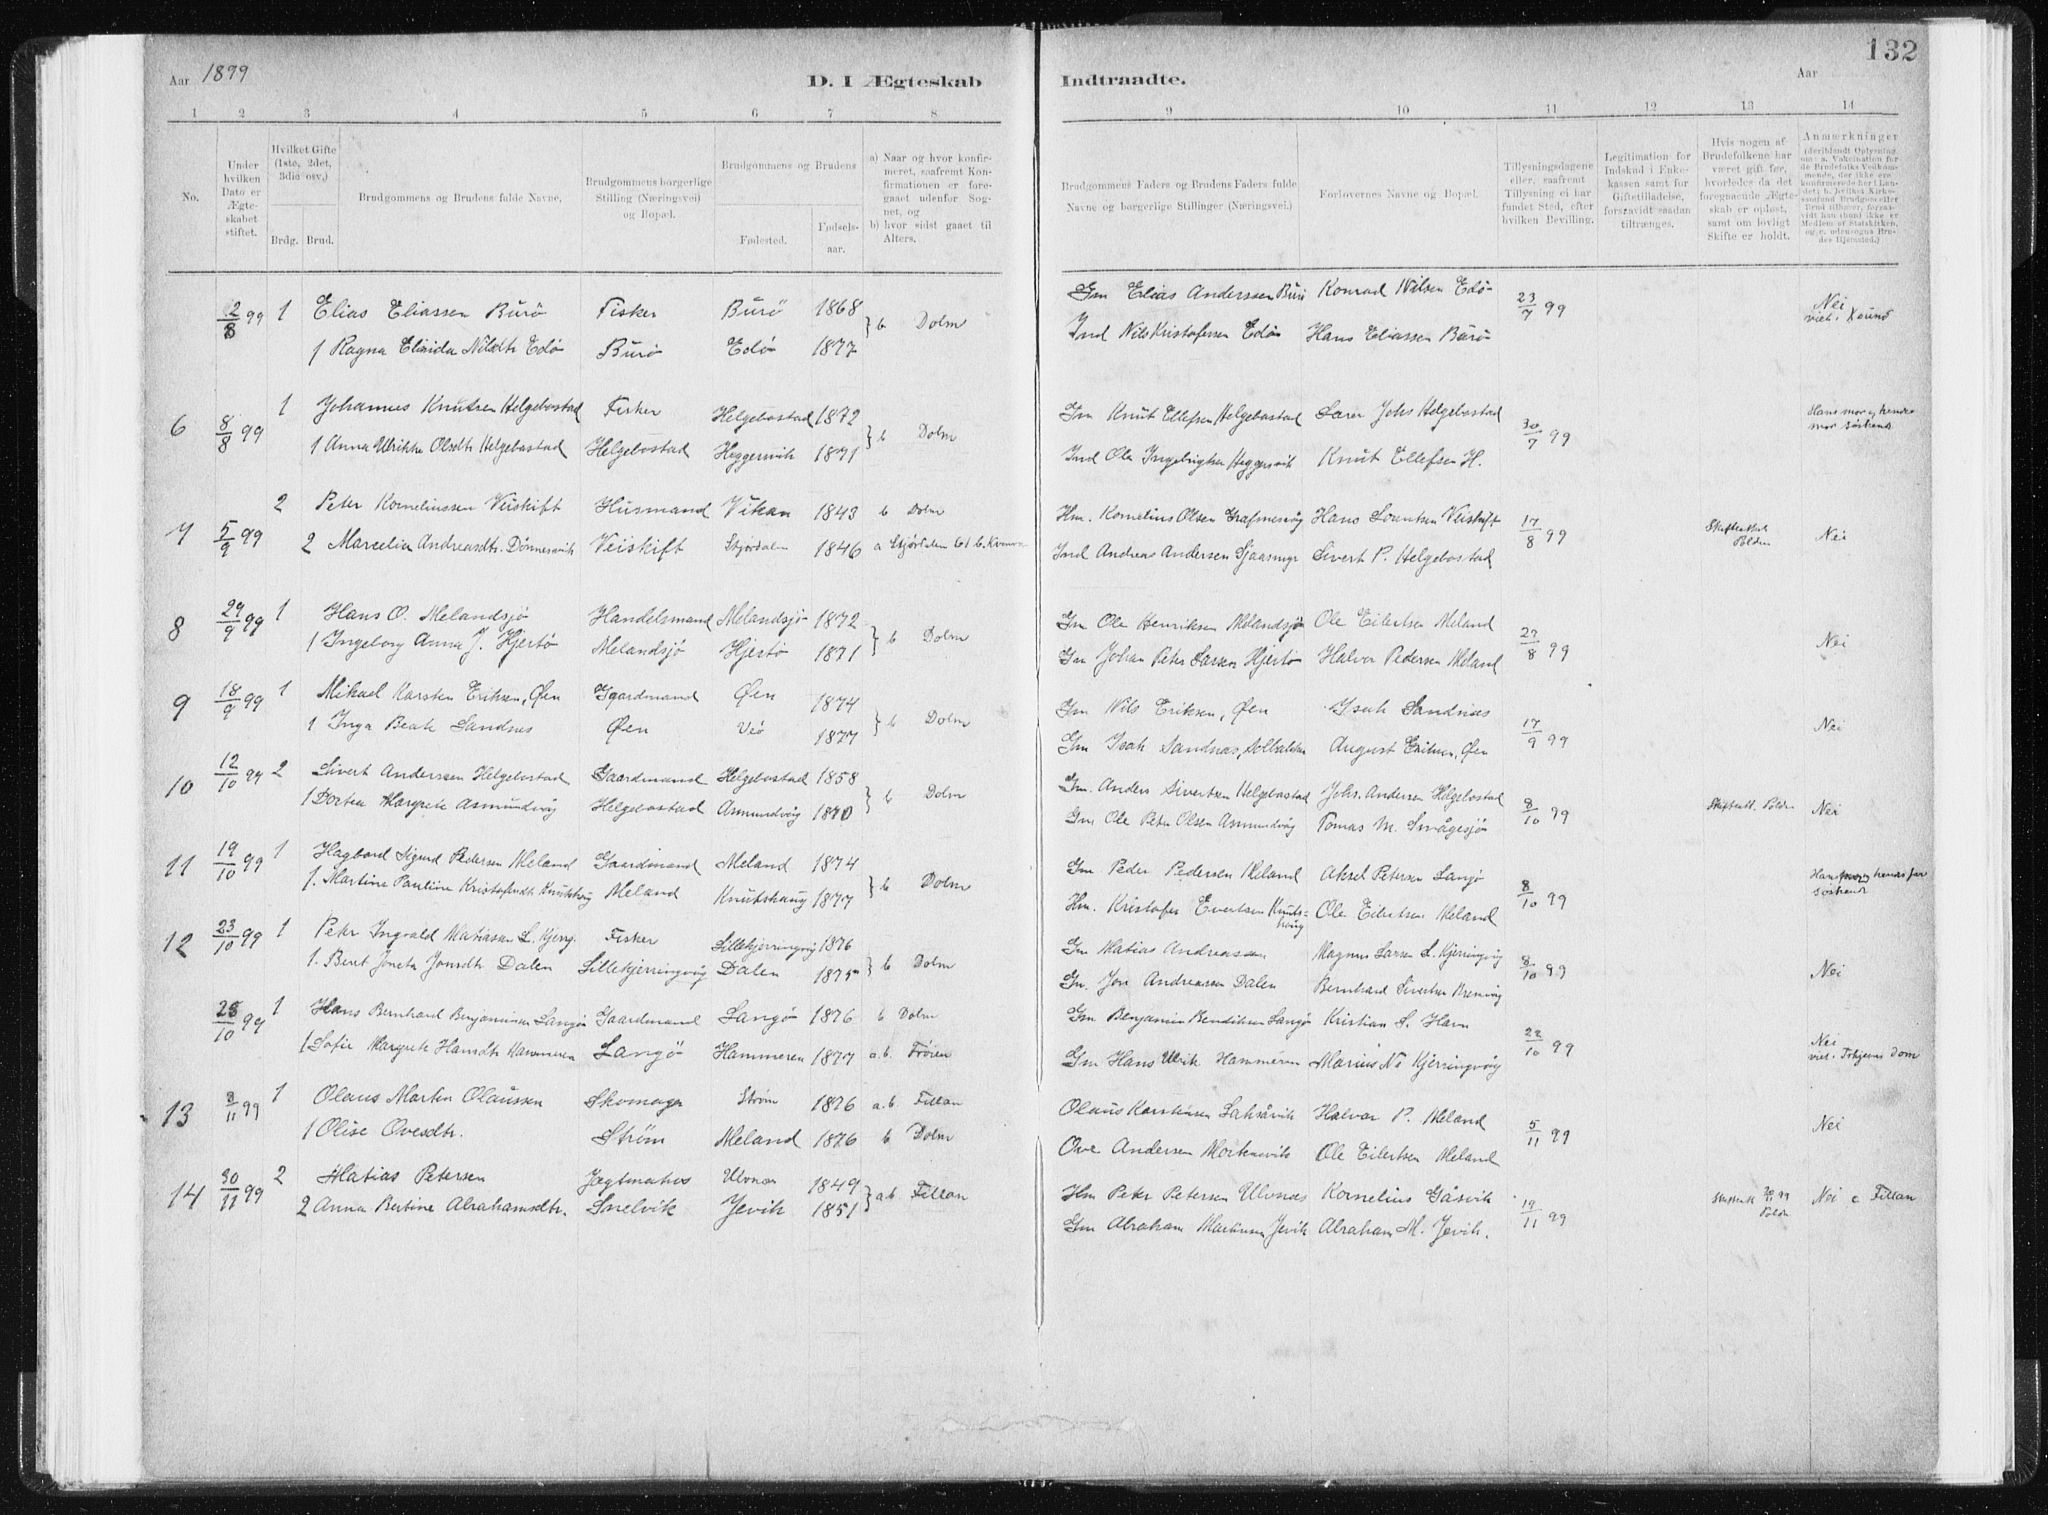 132
Aar 1899
D. I Ægteskab Indtraadte.
Aar
1 2 3 4 5 6 7 8 9 10 11 12 13 14
No.
Under hvilken Dato er Ægteskabet stiftet.
Hvilket Gifte (1ste, 2det, 3die osv.)
Brdg. Brud.
Brudgommens og Brudens fulde Navne.
Brudgommens borgerlige Stilling (Næringsvei) og Bopæl.
Brudgommens og Brudens
Fødested. Fødselsaar.
a) Naar og hvor konfirmeret, saafremt Konfirmationen er foregaaet udenfor Sognet, og
b) hvor sidst gaaet til Alters.
Brudgommens Faders og Brudens Faders fulde Navne og borgerlige Stillinger (Næringsvei.)
Forlovernes Navne og Bopæl.
Tillysningsdagene eller, saafremt Tillysning ei har fundet Sted, efter hvilken Bevilling.
Legitimation for Indskud i Enkekassen samt for Giftetilladelse, forsaavidt saadan tiltrænges.
Hvis nogen af Brudefolkene har været gift før, hvorledes da det foregaaende Ægteskab er opløst, samt om lovligt Skifte er holdt.
Anmærkninger
2/8 99 1 Elias Eliassen Burø Fisker Burø 1868 } b Dolm Gm Elias Anderssen Burø Konrad Nilsen Edø 23/7 99 Nei
1 Ragna Elinida Nilsdtr Edø Burø Edø 1877 Ind Nils Kristofersen Edø Hans Eliassen Burø
6 8/8 99 1 Johannes Knutsen Helgebostad Fisker Helgebostad 1872 } b Dolm Gm Knut Ellefsen Helgebostad Johs Helgebostad 30/7 99 Hans mor og hendes mor søskend
1 Anna Ulrikke Olsdtr Helgebostad Helgebostad Heggersvik 1871 Ind Ole Ingebrigtsen Heggersvik Knut Ellefsen H.
7 5/9 99 2 Peter Korneliussen Veiskift Husmand Vikan 1843 b Dolm Hm. Kornelius Olsen Hans Lorntsen Veiskift 17/8 99 Nei
2 Marcelia Andreasdtr. Dønnesvik Veiskift Stjørdalen 1846 a Stjørdalen 61 b. Ind Andreas Andersen Sivert P. Helgebostad
8 29/9 99 1 Hans O. Melandsjø Handelsmand Melandsjø 1872 } b Dolm Gm Ole Henriksen Melandsjø Ole Eilertsen Meland 27/8 99 Nei
1 Ingeborg Anna J. Hjertø Melandsjø Hjertø 1871 Gm Johan Peter Larsen Hjertø Halvor Pedersen Meland
9 18/9 99 1 Mikael Karsten Eriksen, Øen Gaardmand Øen 1874 } b Dolm Gm Nils Eriksen, Øen Isak Sandnes 17/9 99 Nei
1 Inga Beate Sandnes Øen Veø 1877 Gm Isak Sandnæs, August Eriksen, Øen
10 12/10 99 2 Sivert Anderssen Helgebostad Gaardmand Helgebostad 1858 } b Dolm Gm. Anders Sivertsen Helgebostad Johs. Andersen Helgebostad 8/10 99 Nei
1 Dortea Margrete Asmundvåg Helgebostad Asmundvåg 1870 Gm Ole Peter Olsen Asmundvåg Tomas M. Smågesjø
11 19/10 99 1 Hagbard Sigurd Pedersen Meland Gaardmand Meland 1874 } b Dolm Gm Peder Pedersen Meland Aksel Petersen Langø 8/10 99 søskend
1. Martine Pauline Kristofersdtr Knutshaug Meland Knutshaug 1877 Hm. Kristofer Evertsen Knutshaug Ole Eilertsen Meland
12 23/10 99 1 Peter Ingvald Matiasen L. Kjerrg. Fisker Lillekjerringvåg 1876 } b Dolm Gm Matias Andreassen Magnus Larsen L. Kjerringvåg 8/10 99 Nei
1. Beret Joneta Jonsdtr Dalen Lillekjerringvåg Dalen 1875 Gm. Jon Andreassen Dalen Bernhard Sivertsen
25/10 99 1 Hans Bernhard Benjaminsen Langø Gaardmand Langø 1876 b Dolm Gm Benjamin Bendiksen Langø Kristian S. Havn 22/10 99 Nei
1 Sofie Margrete Hansdtr Hammeren Langø Hammeren 1877 a.b. Frøien Gm Hans Ulrik Hammeren Marius N. Kjerringvåg
13 9/11 99 1 Olaus Martin Olaussen Skomager Strøm 1876 a.b. Fillan Olaus Karstensen Laksåvik Halvor P. Meland 5/11 99 Nei
1 Olise Ovesdtr. Strøm Meland 1876 b Dolm Ove Andersen Mortensvik Ole Eilertsen Meland
14 30/11 99 2 Matias Petersen Ulvnes 1849 } a.b. Fillan Hm Peter Petersen Ulvnæs Kornelius Gåsvik 19/11 99 Nei c Fillan
2 Anna Bertine Abrahamsdtr. Snelvik Jevik 1851 Gm Abraham Martinsen Jevik Abraham M. Jevik.